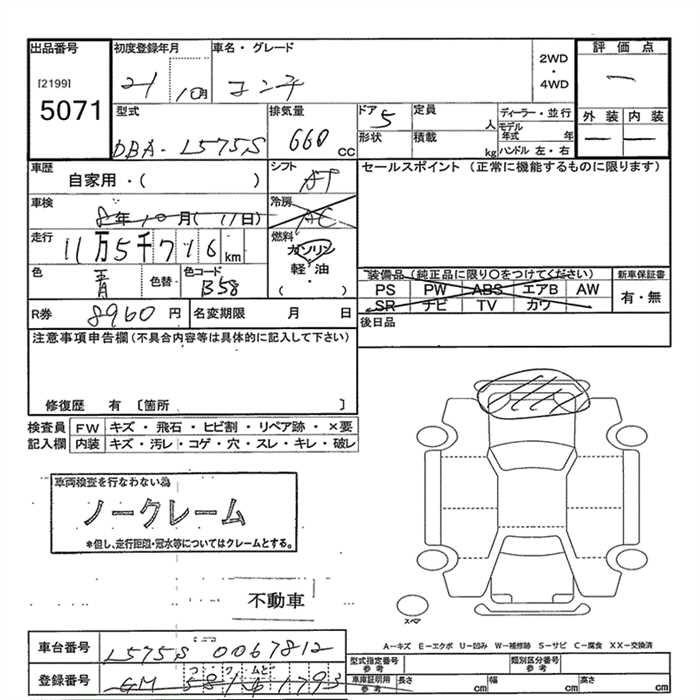 出品番号 初度登録年月 車名・グレード 評価点
[2199] 21 10月 コンテ 2WD・4WD ー
5071
型式 排気量 ドア 5 定員 人 ディーラー・並行 外装 内装
DBA-L575S 660cc 形状 積載 kg モデル年式 年 ー ー
ハンドル 左・右
車歴 シフト セールスポイント(正常に機能するものに限ります)
自家用・( ) AT
車検 8年10月(11日) 冷房 AC
走行 11万5千716km 燃料 ガソリン
軽油・( )
色 青 色替 色コード B58
装備品(純正品に限り○をつけてください) 新車保証書
PS PW ABS エアB AW 有・無
SR ナビ TV カワ
R券 8960円 名変期限 月 日 後日品
注意事項申告欄(不具合内容等は具体的に記入して下さい)
修復歴 有 〔箇所 〕
検査員 FW キズ・飛石・ヒビ割・リペア跡・×要
記入欄 内装 キズ・汚レ・コゲ・穴・スレ・キレ・破レ
車両検査を行なわない為
ノークレーム
*但し、走行距離・冠水等についてはクレームとする。
不動車
スペア
A-キズ E-エクボ U-凹み W-補修跡 S-サビ C-腐食 XX-交換済
車台番号 L575S 0067812
型式指定番号 参考 類別区分番号 参考
登録番号
車庫証明用 参考 長さ cm 幅 cm 高さ cm